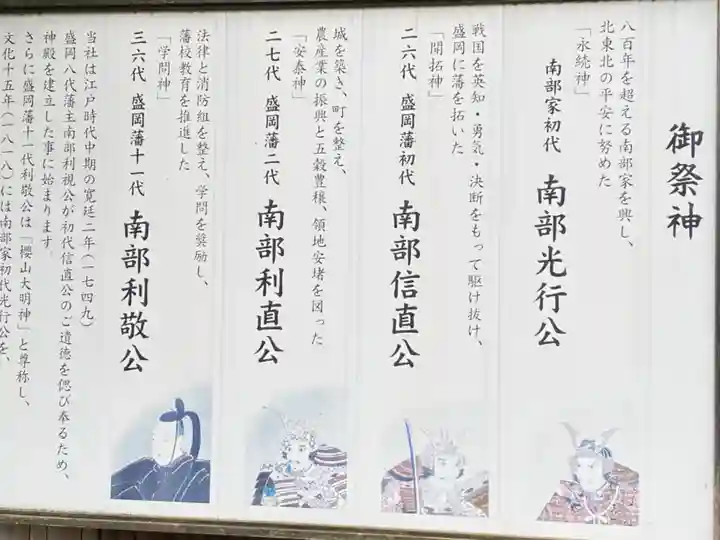 御祭神
八百年を超える南部家を興し、
北東北の平安に努めた
「永続神」
南部家初代 南部光行公
戦国を英知・勇気・決断をもって駆け抜け、
盛岡に藩を拓いた
「開拓神」
二六代 盛岡藩初代 南部信直公
城を築き、町を整え、
農産業の振興と五穀豊穣、領地安堵を図った
「安泰神」
二七代 盛岡藩二代 南部利直公
法律と消防組を整え、学問を奨励し、
藩校教育を推進した
「学問神」
三六代 盛岡藩十一代 南部利敬公
当社は江戸時代中期の寛延二年(一七四九)
盛岡八代藩主南部利視公が初代信直公のご遺徳を偲び奉るため、
神殿を建立した事に始まります。
さらに盛岡藩十一代利敬公は「櫻山大明神」と尊称し、
文化十五年(一八一八)には南部家初代光行公を、